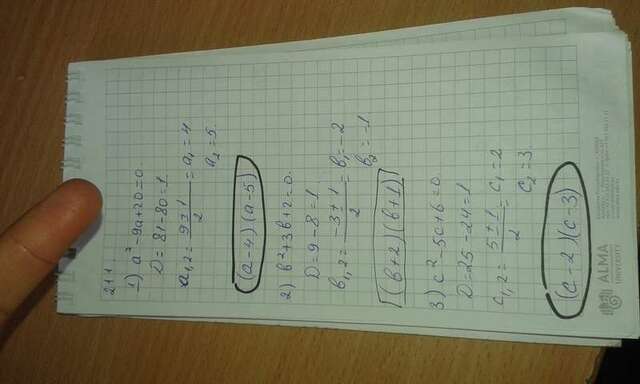 211.
1) a² - 9a + 20 = 0.
D = 81 - 80 = 1
a₁,₂ = (9 ± 1)/2 = a₁ = 4
a₂ = 5
(a - 4)(a - 5)
2) b² + 3b + 2 = 0.
D = 9 - 8 = 1
b₁,₂ = (-3 ± 1)/2 = b₁ = -2
b₂ = -1
(b + 2)(b + 1)
3) c² - 5c + 6 = 0
D = 25 - 24 = 1
c₁,₂ = (5 ± 1)/2 = c₁ = 2
c₂ = 3
(c - 2)(c - 3)
ALMA
UNIVERSITY